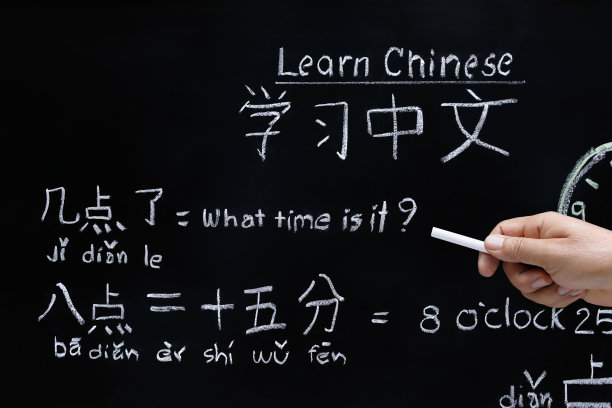 Learn Chinese
学习中文
几点了 = What time is it?
jǐ diǎn le
八点二十五分 = 8 o'clock 25
bā diǎn èr shí wǔ fēn
diǎn 点
9